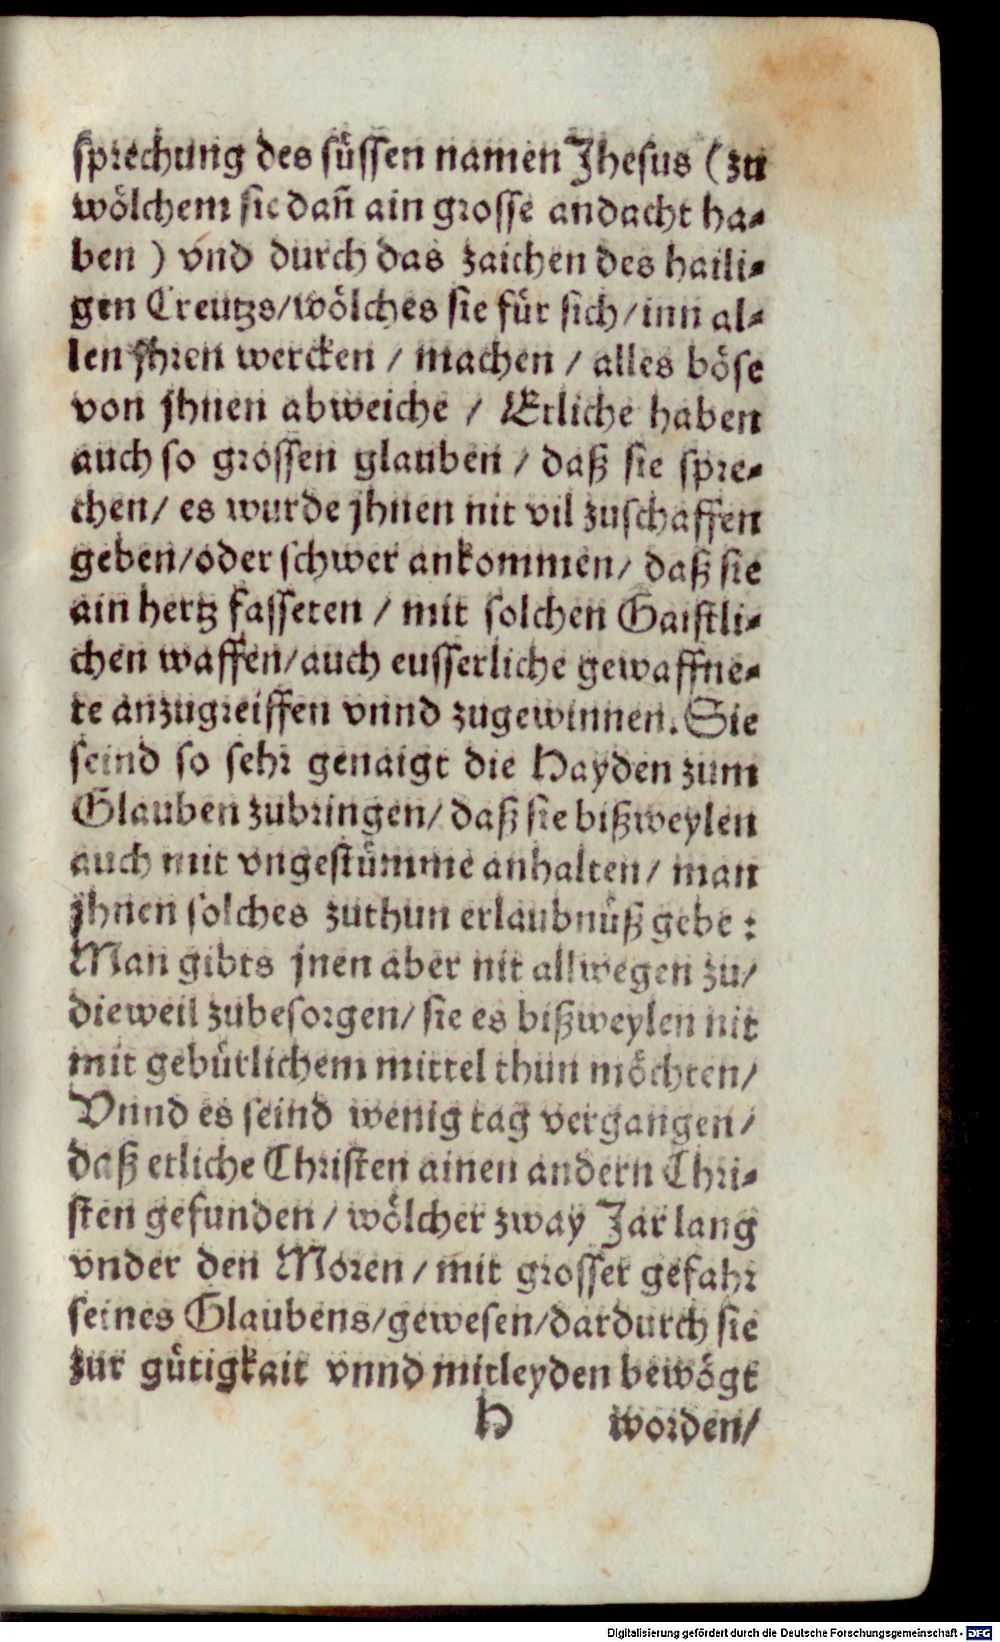 sprechung des süssen namen Jhesus (zu
wölchem sie dañ ain grosse andacht ha⸗
ben ) vnd durch das zaichen des haili⸗
gen Creutzs/wölches sie für sich/inn al⸗
len jhren wercken / machen / alles böse
von jhnen abweiche / Etliche haben
auch so grossen glauben / daß sie spre⸗
chen/ es wurde jhnen nit vil zuschaffen
geben/oder schwer ankommen/ daß sie
ain hertz fasseten / mit solchen Gaistli⸗
chen waffen/auch eusserliche gewaffne⸗
te anzugreiffen vnnd zugewinnen. Sie
seind so sehr genaigt die Hayden zum
Glauben zubringen/ daß sie bißweylen
auch mit vngestümme anhalten/ man
jhnen solches zuthun erlaubnuß gebe :
Man gibts jnen aber nit allwegen zu/
dieweil zubesorgen/ sie es bißweylen nit
mit gebürlichem mittel thun möchten/
Vnnd es seind wenig tag vergangen/
daß etliche Christen ainen andern Chri⸗
sten gefunden / wölcher zway Jar lang
vnder den Moren / mit grosser gefahr
seines Glaubens/gewesen/dardurch sie
zur gütigkait vnnd mitleyden bewögt
H worden/
Digitalisierung gefördert durch die Deutsche Forschungsgemeinschaft - DFG